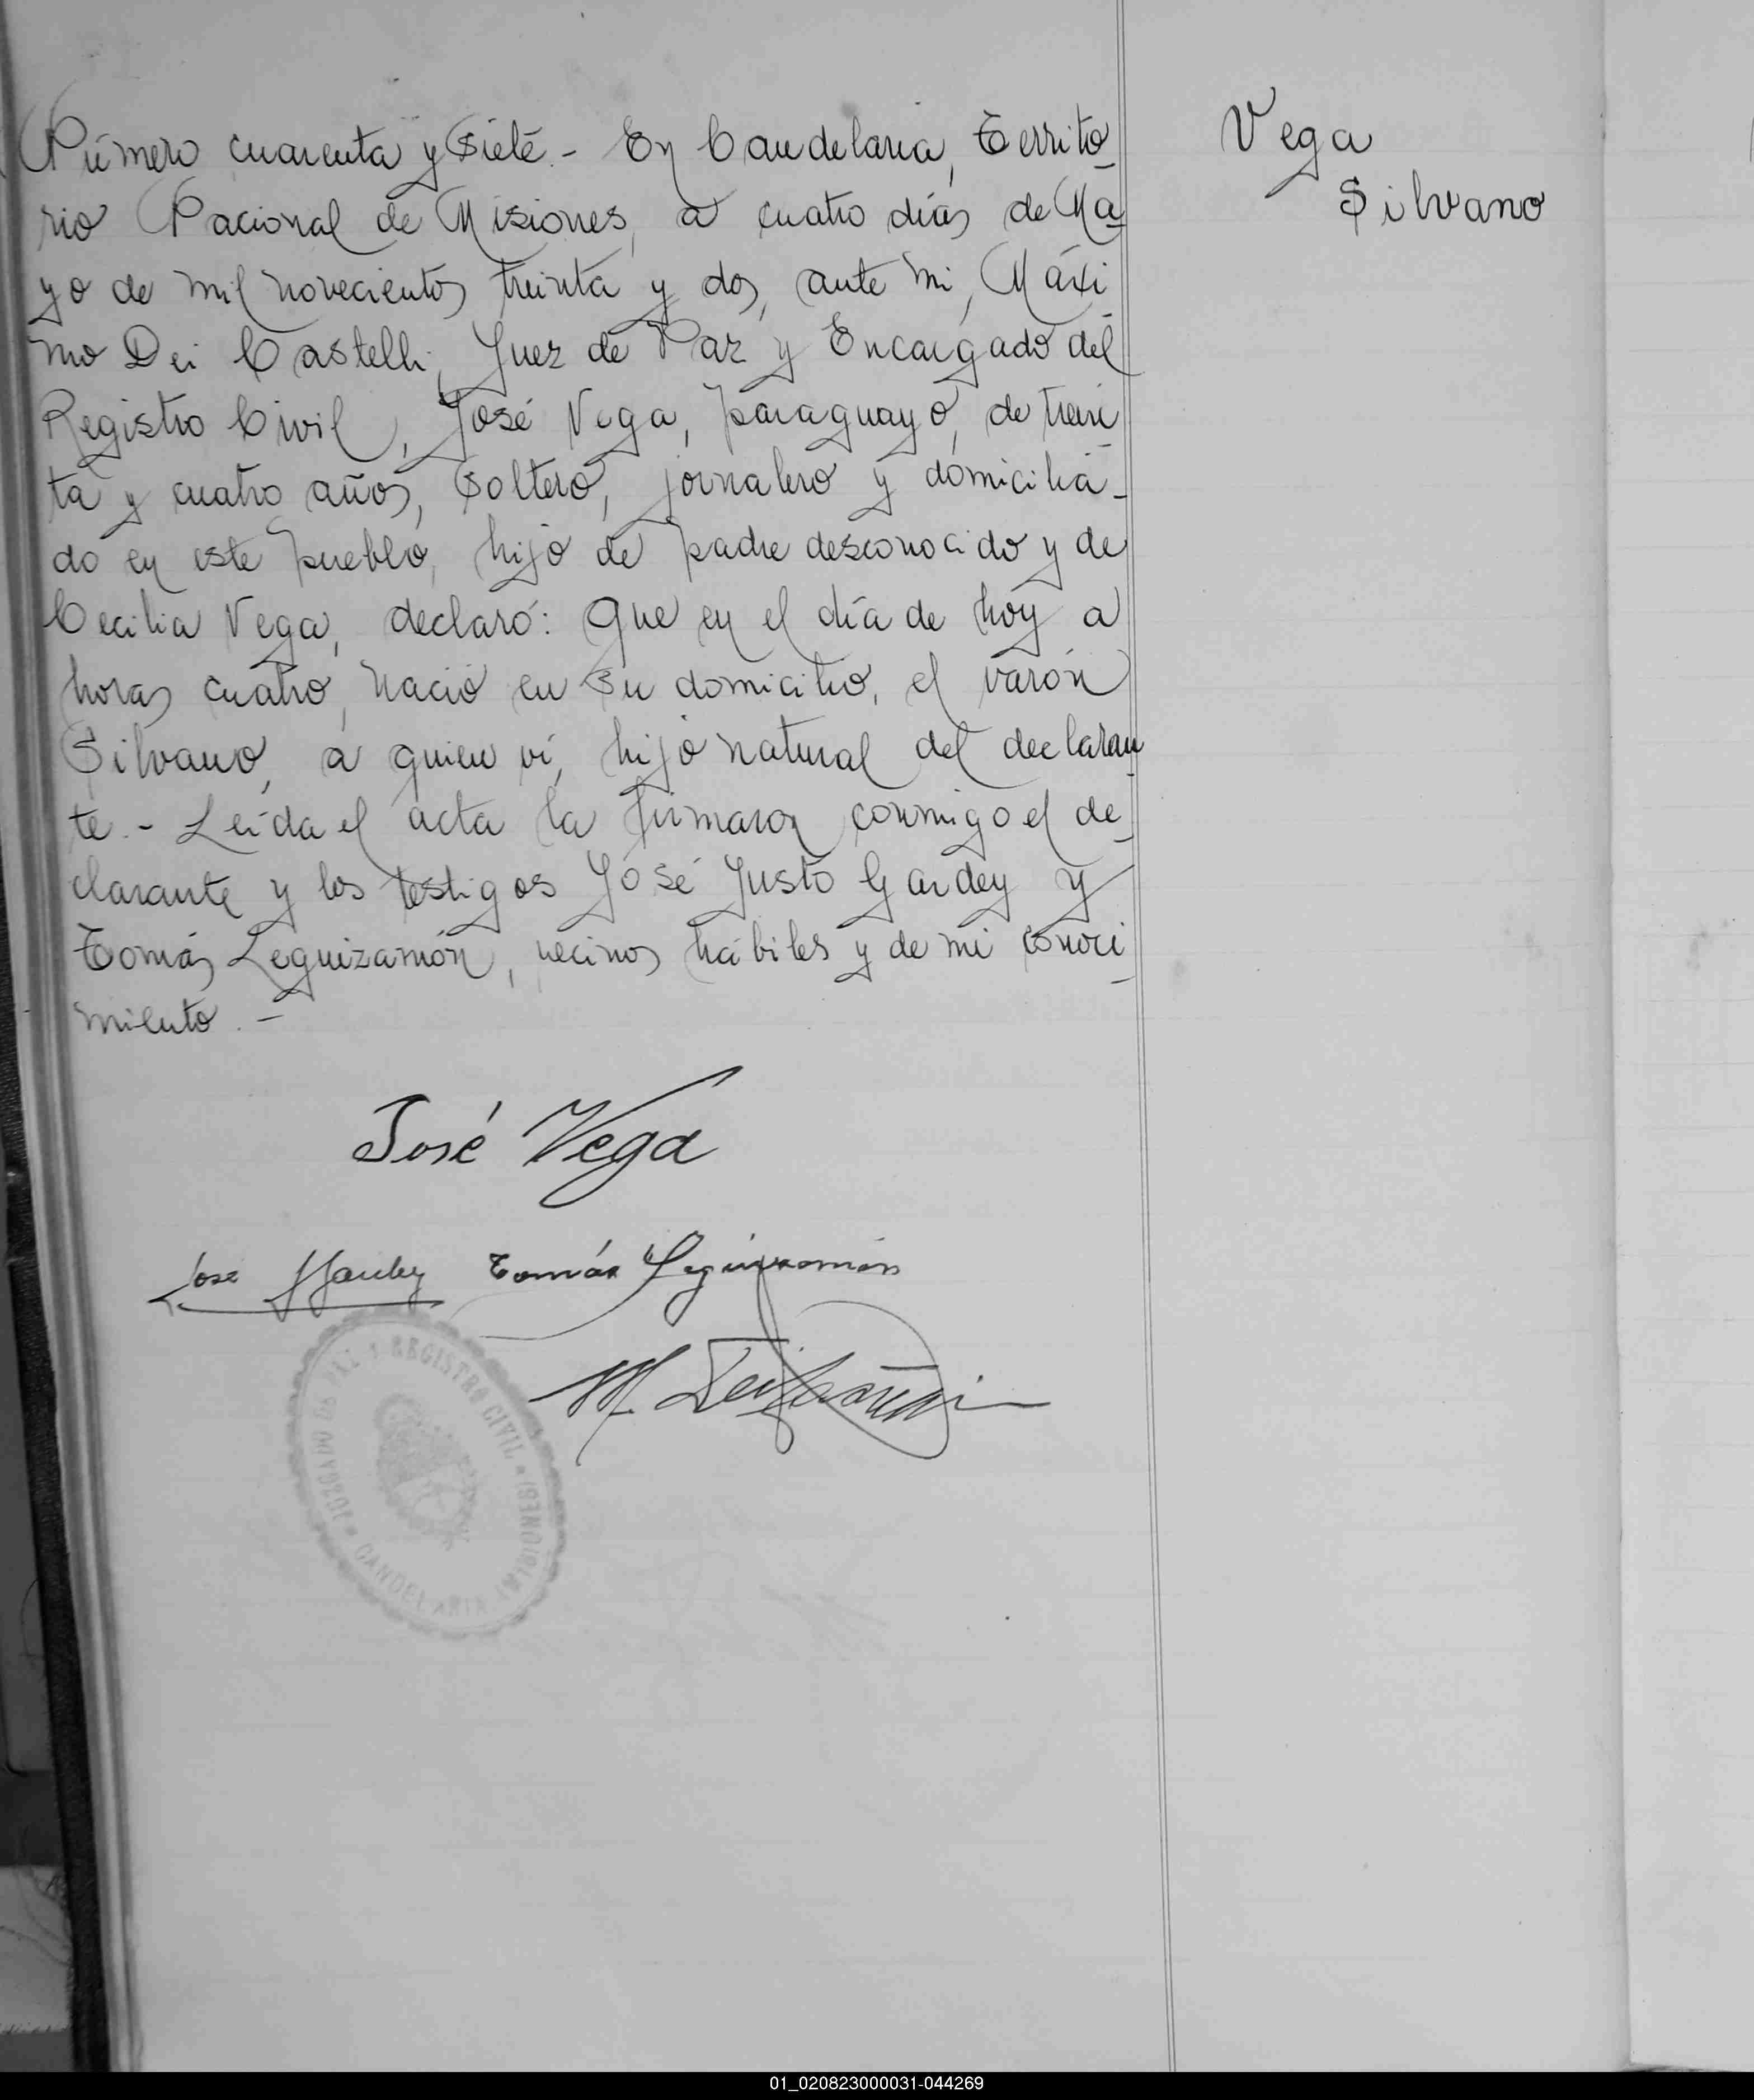 Número cuarenta y siete.- En Candelaria, Territo-
rio Nacional de Misiones, a cuatro días de Ma-
yo de mil novecientos treinta y dos, ante mi, Máxi-
mo Dei Castelli, Juez de Paz y Encargado del
Registro Civil, José Vega, paraguayo, de trein-
ta y cuatro años, soltero, jornalero y domicilia-
do en este pueblo, hijo de padre desconocido y de
Cecilia Vega, declaró: Que en el día de hoy a
horas cuatro, nació en su domicilio, el varón
Silvano, a quien ví, hijo natural del declaran-
te.- Leída el acta la firmaron conmigo el de-
clarante y los testigos José Justo Gardey y
Tomás Leguizamón, vecinos hábiles y de mi conoci-
miento.-
Vega
Silvano
José Vega
Jose Gardey Tomás Leguizamón
M. Dei Castelli
JUZGADO DE PAZ Y REGISTRO CIVIL
CANDELARIA (MISIONES)
01_020823000031-044269